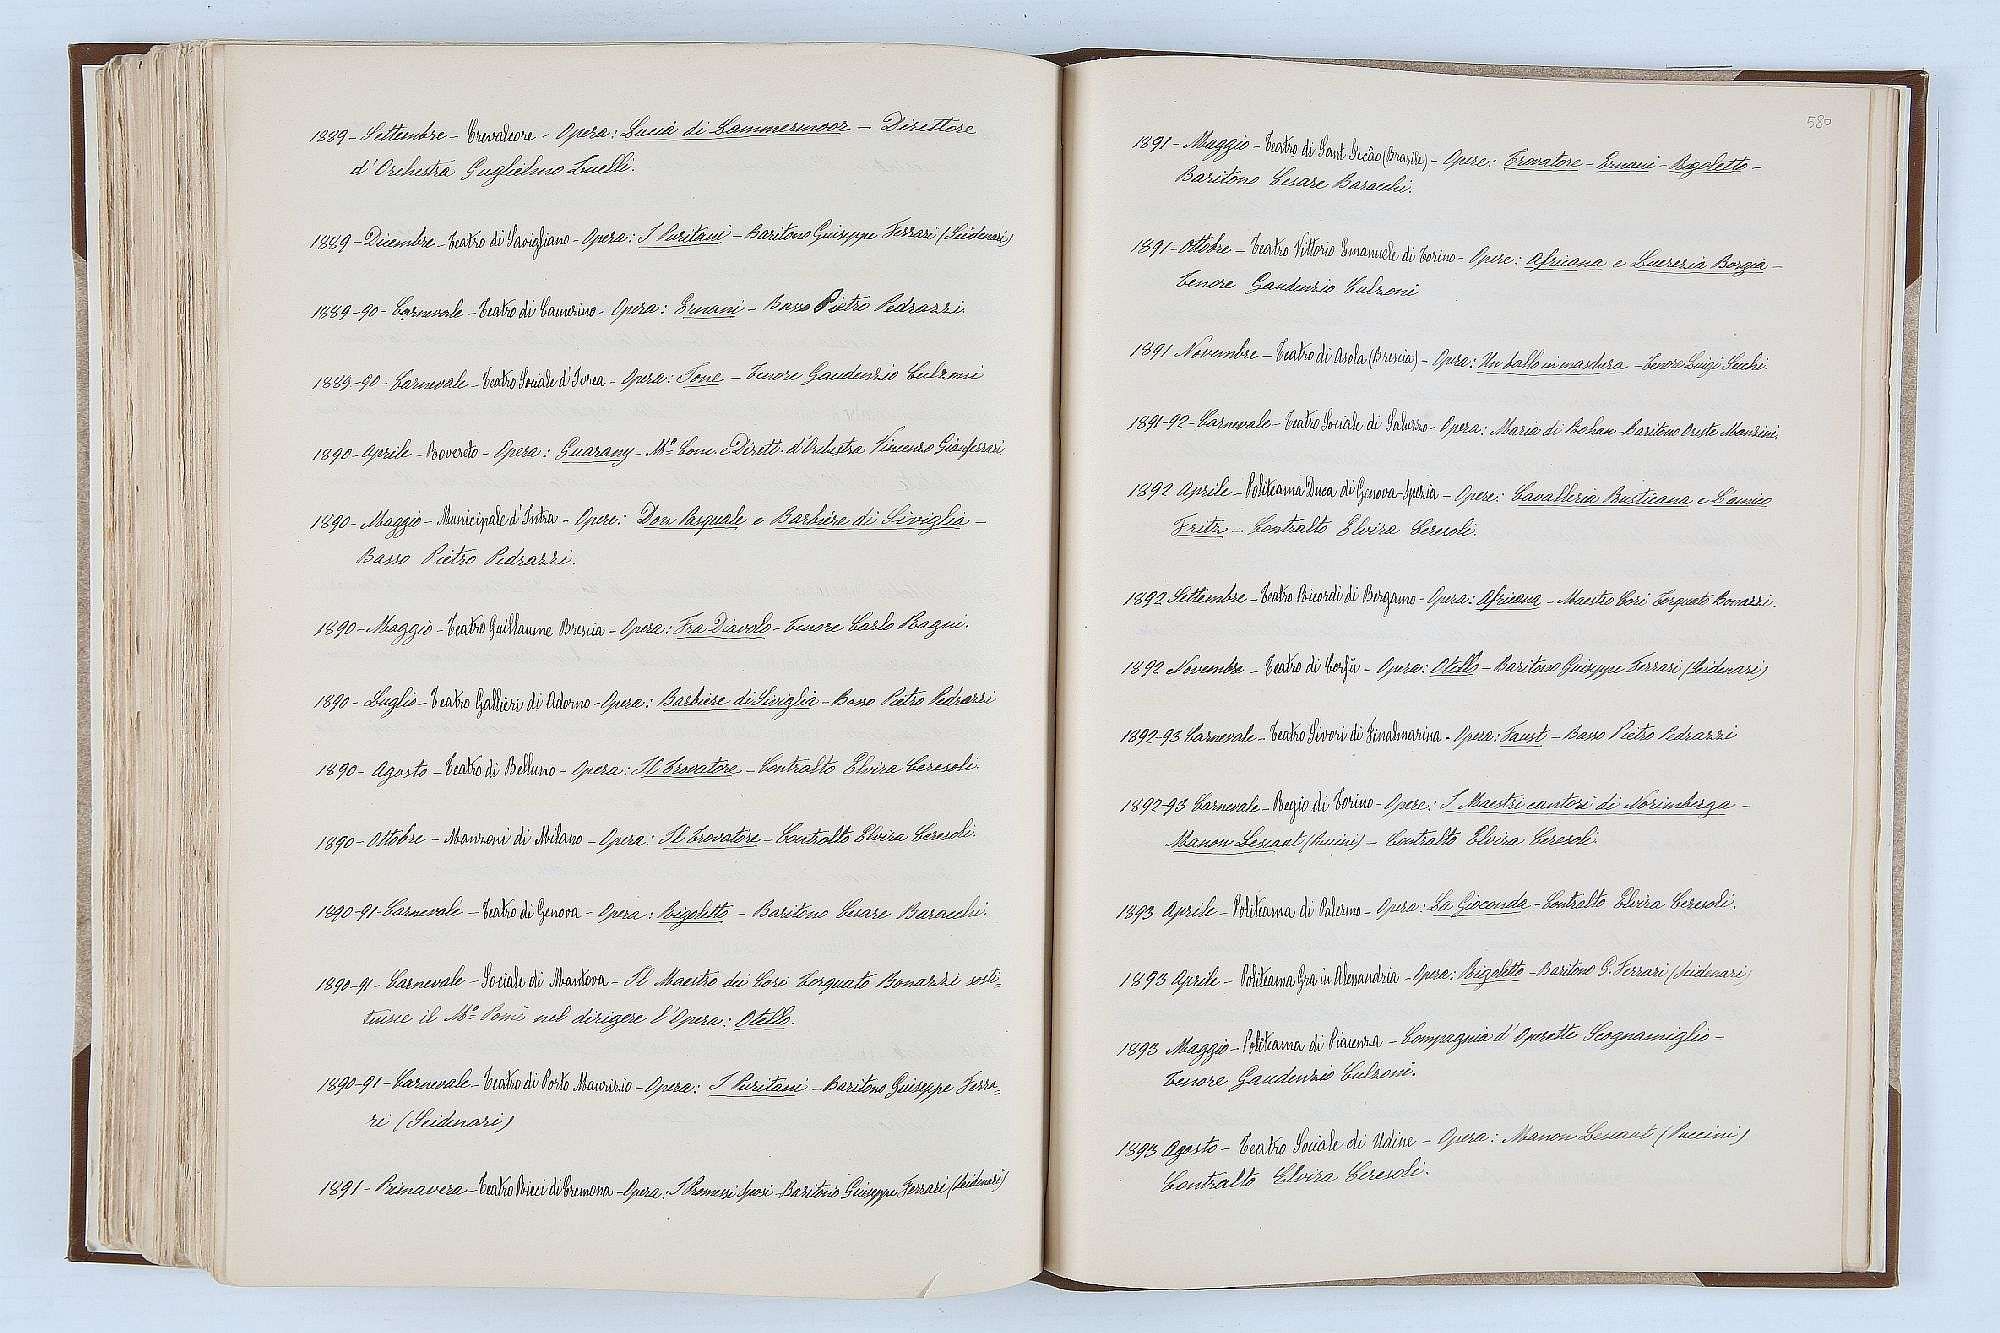 1889 - Settembre - Crevalcore - Opera: Lucia di Lammermoor - Direttore
d'Orchestra Guglielmo Zuelli.
1889 - Dicembre - Teatro di Savigliano - Opera: I Puritani - Baritono Giuseppe Ferrari (Seidenari)
1889-90 - Carnevale - Teatro di Camerino - Opera: Ernani - Basso Pietro Pedrazzi.
1889-90 - Carnevale - Teatro Sociale d'Ivrea - Opera: Jone - Tenore Gaudenzio Culzoni
1890 - Aprile - Rovereto - Opera: Guarany - Mº Conc. e Dirett. d'Orchestra Vincenzo Gianferrari
1890 - Maggio - Municipale d'Intra - Opere: Don Pasquale e Barbiere di Siviglia -
Basso Pietro Pedrazzi.
1890 - Maggio - Teatro Guillaume Brescia - Opera: Fra Diavolo - Tenore Carlo Ragni.
1890 - Luglio - Teatro Gallieri di Adorno - Opera: Barbiere di Siviglia - Basso Pietro Pedrazzi
1890 - Agosto - Teatro di Belluno - Opera: Il Trovatore - Contralto Elvira Ceresoli.
1890 - Ottobre - Manzoni di Milano - Opera: Il Trovatore - Contralto Elvira Ceresoli.
1890-91 - Carnevale - Teatro di Genova - Opera: Rigoletto - Baritono Cesare Baracchi.
1890-91 - Carnevale - Sociale di Mantova - Il Maestro dei Cori Torquato Bonazzi sosti-
tuisce il Mº Pomè nel dirigere l'Opera: Otello.
1890-91 - Carnevale - Teatro di Porto Maurizio - Opera: I Puritani - Baritono Giuseppe Ferra-
ri (Seidenari)
1891 - Primavera - Teatro Ricci di Cremona - Opera: I Promessi Sposi - Baritono Giuseppe Ferrari (Seidenari)
580
1891 - Maggio - Teatro di Sant (Brasile) - Opere: Trovatore - Ernani - Rigoletto -
Baritono Cesare Baracchi.
1891 - Ottobre - Teatro Vittorio Emanuele di Torino - Opere: Africana e Lucrezia Borgia -
Tenore Gaudenzio Culzoni
1891 Novembre - Teatro di Asola (Brescia) - Opera: Un ballo in maschera - Tenore Luigi Secchi.
1891-92 - Carnevale - Teatro Sociale di Saluzzo - Opera: Maria di Rohan - Baritono Oreste Manzini.
1892 Aprile - Politeama Duca di Genova - Spezia - Opere: Cavalleria Rusticana e L'amico
Fritz - Contralto Elvira Ceresoli.
1892 Settembre - Teatro Ricordi di Bergamo - Opera: Africana - Maestro Cori Torquato Bonazzi.
1892 Novembre - Teatro di Corfù - Opera: Otello - Baritono Giuseppe Ferrari (Seidenari)
1892-93 Carnevale - Teatro Sivori di Finalmarina - Opera: Faust - Basso Pietro Pedrazzi
1892-93 Carnevale - Regio di Torino - Opere: I Maestri cantori di Norimberga -
Manon Lescaut (Puccini) - Contralto Elvira Ceresoli.
1893 Aprile - Politeama di Palermo - Opera: La Gioconda - Contralto Elvira Ceresoli.
1893 Aprile - Politeama Gra in Alessandria - Opera: Rigoletto - Baritono G. Ferrari (Seidenari)
1893 Maggio - Politeama di Piacenza - Compagnia d'Operette Scognamiglio -
Tenore Gaudenzio Culzoni.
1893 Agosto - Teatro Sociale di Udine - Opera: Manon Lescaut (Puccini)
Contralto Elvira Ceresoli.